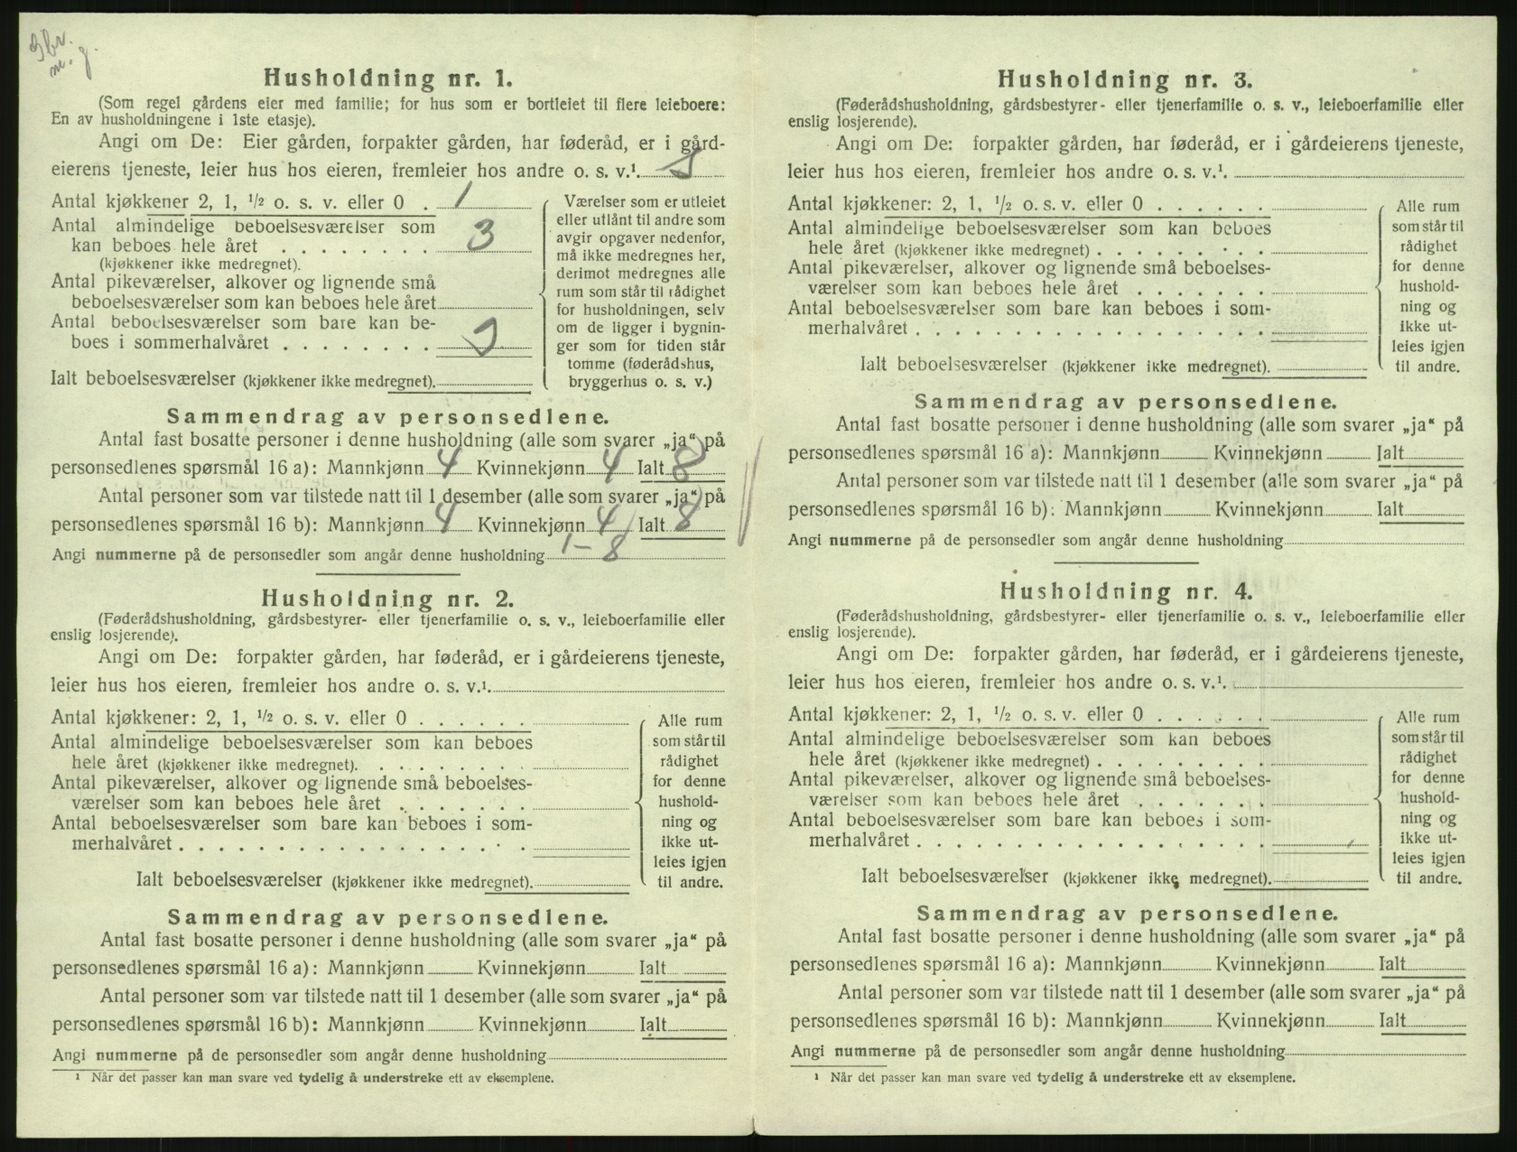 Husholdning nr. 1.
(Som regel gårdens eier med familie; for hus som er bortleiet til flere leieboere:
En av husholdningene i 1ste etasje).
Angi om De: Eier gården, forpakter gården, har føderåd, er i gård-
eierens tjeneste, leier hus hos eieren, fremleier hos andre o. s. v.¹.
Antal kjøkkener 2, 1, ½ o. s. v. eller 0 . 1
Antal almindelige beboelsesværelser som
kan beboes hele året . . . . . . . . 3
(kjøkkener ikke medregnet).
Antal pikeværelser, alkover og lignende små
beboelsesværelser som kan beboes hele året
Antal beboelsesværelser som bare kan be-
boes i sommerhalvåret . . . . . . . .
Ialt beboelsesværelser (kjøkkener ikke medregnet).
Værelser som er utleiet
eller utlånt til andre som
avgir opgaver nedenfor,
må ikke medregnes her,
derimot medregnes alle
rum som står til rådighet
for husholdningen, selv
om de ligger i bygnin-
ger som for tiden står
tomme (føderådshus,
bryggerhus o. s. v.)
Sammendrag av personsedlene.
Antal fast bosatte personer i denne husholdning (alle som svarer „ja“ på
personsedlenes spørsmål 16 a): Mannkjønn 4 Kvinnekjønn 4 Ialt 8
Antal personer som var tilstede natt til 1 desember (alle som svarer „ja“ på
personsedlenes spørsmål 16 b): Mannkjønn 4 Kvinnekjønn 4 Ialt 8
Angi nummerne på de personsedler som angår denne husholdning 1 – 8
Husholdning nr. 2.
(Føderådshusholdning, gårdsbestyrer- eller tjenerfamilie o. s. v., leieboerfamilie eller
enslig losjerende).
Angi om De: forpakter gården, har føderåd, er i gårdeierens tjeneste,
leier hus hos eieren, fremleier hos andre o. s. v.¹.
Antal kjøkkener: 2, 1, ½ o. s. v. eller 0 . . . . . .
Antal almindelige beboelsesværelser som kan beboes
hele året (kjøkkener ikke medregnet). . . . . . . . .
Antal pikeværelser, alkover og lignende små beboelses-
værelser som kan beboes hele året . . . . . . .
Antal beboelsesværelser som bare kan beboes i som-
merhalvåret . . . . . . . . . . . . . . . . . .
Ialt beboelsesværelser (kjøkkener ikke medregnet).
Alle rum
som står til
rådighet
for denne
hushold-
ning og
ikke ut-
leies igjen
til andre.
Sammendrag av personsedlene.
Antal fast bosatte personer i denne husholdning (alle som svarer „ja“ på
personsedlenes spørsmål 16 a): Mannkjønn Kvinnekjønn Ialt
Antal personer som var tilstede natt til 1 desember (alle som svarer „ja“ på
personsedlenes spørsmål 16 b): Mannkjønn Kvinnekjønn Ialt
Angi nummerne på de personsedler som angår denne husholdning
¹ Når det passer kan man svare ved tydelig å understreke ett av eksemplene.
Husholdning nr. 3.
(Føderådshusholdning, gårdsbestyrer- eller tjenerfamilie o. s. v., leieboerfamilie eller
enslig losjerende).
Angi om De: forpakter gården, har føderåd, er i gårdeierens tjeneste,
leier hus hos eieren, fremleier hos andre o. s. v.¹.
Antal kjøkkener: 2, 1, ½ o. s. v. eller 0 . . . . . .
Antal almindelige beboelsesværelser som kan beboes
hele året (kjøkkener ikke medregnet) . . . . . . . . .
Antal pikeværelser, alkover og lignende små beboelses-
værelser som kan beboes hele året . . . . . . .
Antal beboelsesværelser som bare kan beboes i som-
merhalvåret . . . . . . . . . . . . . . . . . .
Ialt beboelsesværelser (kjøkkener ikke medregnet).
Alle rum
som står til
rådighet
for denne
hushold-
ning og
ikke ut-
leies igjen
til andre.
Sammendrag av personsedlene.
Antal fast bosatte personer i denne husholdning (alle som svarer „ja“ på
personsedlenes spørsmål 16 a): Mannkjønn Kvinnekjønn Ialt
Antal personer som var tilstede natt til 1 desember (alle som svarer „ja“ på
personsedlenes spørsmål 16 b): Mannkjønn Kvinnekjønn Ialt
Angi nummerne på de personsedler som angår denne husholdning
Husholdning nr. 4.
(Føderådshusholdning, gårdsbestyrer- eller tjenerfamilie o. s. v., leieboerfamilie eller
enslig losjerende).
Angi om De: forpakter gården, har føderåd, er i gårdeierens tjeneste,
leier hus hos eieren, fremleier hos andre o. s. v.¹.
Antal kjøkkener: 2, 1, ½ o. s. v. eller 0 . . . . . .
Antal almindelige beboelsesværelser som kan beboes
hele året (kjøkkener ikke medregnet) . . . . . . . . .
Antal pikeværelser, alkover og lignende små beboelses-
værelser som kan beboes hele året . . . . . . .
Antal beboelsesværelser som bare kan beboes i som-
merhalvåret . . . . . . . . . . . . . . . . . .
Ialt beboelsesværelser (kjøkkener ikke medregnet).
Alle rum
som står til
rådighet
for denne
hushold-
ning og
ikke ut-
leies igjen
til andre.
Sammendrag av personsedlene.
Antal fast bosatte personer i denne husholdning (alle som svarer „ja“ på
personsedlenes spørsmål 16 a): Mannkjønn Kvinnekjønn Ialt
Antal personer som var tilstede natt til 1 desember (alle som svarer „ja“ på
personsedlenes spørsmål 16 b): Mannkjønn Kvinnekjønn Ialt
Angi nummerne på de personsedler som angår denne husholdning
¹ Når det passer kan man svare ved tydelig å understreke ett av eksemplene.